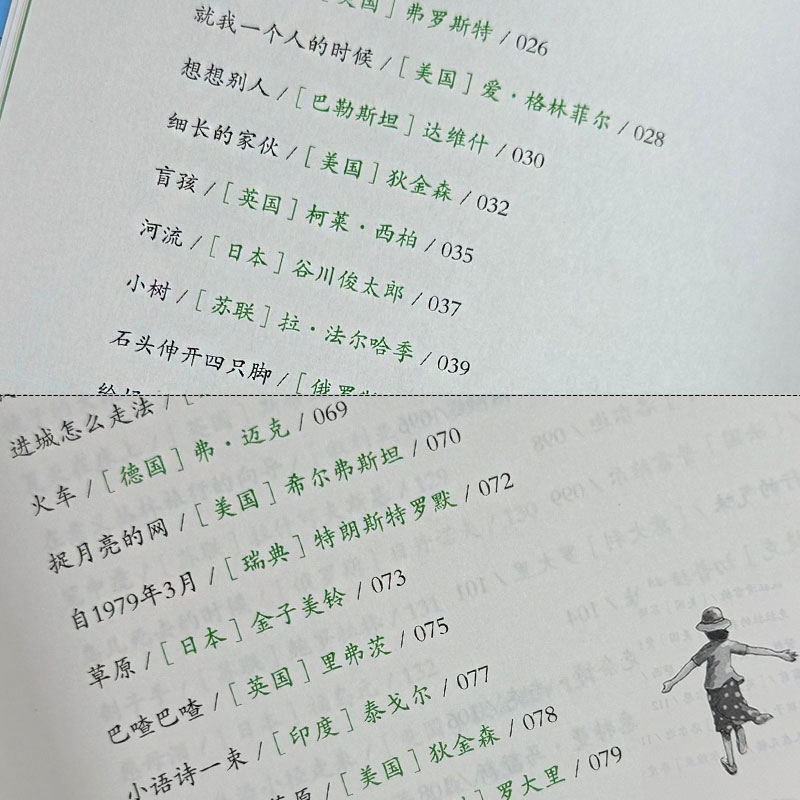 美国］弗罗斯特 / 026
就我一个人的时候 /［美国］爱·格林菲尔 / 028
想想别人 /［巴勒斯坦］达维什 / 030
细长的家伙 /［美国］狄金森 / 032
盲孩 /［英国］柯莱·西柏 / 035
河流 /［日本］谷川俊太郎 / 037
小树 /［苏联］拉·法尔哈季 / 039
石头伸开四只脚 /［俄罗
进城怎么走法 /［德国］弗·迈克 / 069
火车 /［美国］希尔弗斯坦 / 070
捉月亮的网 /［瑞典］特朗斯特罗默 / 072
自1979年3月 /［日本］金子美铃 / 073
草原 /［英国］里弗茨 / 075
巴喳巴喳 /［印度］泰戈尔 / 077
小语诗一束 /［美国］狄金森 / 078
原 /
］罗大里 / 079